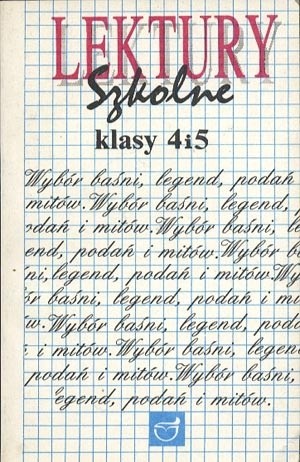 LEKTURY
Szkolne
klasy 4i5
Wybór baśni, legend, podań
mitów. Wybór baśni, legend,
odań i mitów. Wybór baśni, le
end, podań i mitów. Wybór b
ni, legend, podań i mitów. Wy
ór baśni, legend, podań i mi
w. Wybór baśni, legend, poda
i mitów. Wybór baśni, legen
podań i mitów. Wybór baśni,
egend, podań i mitów.